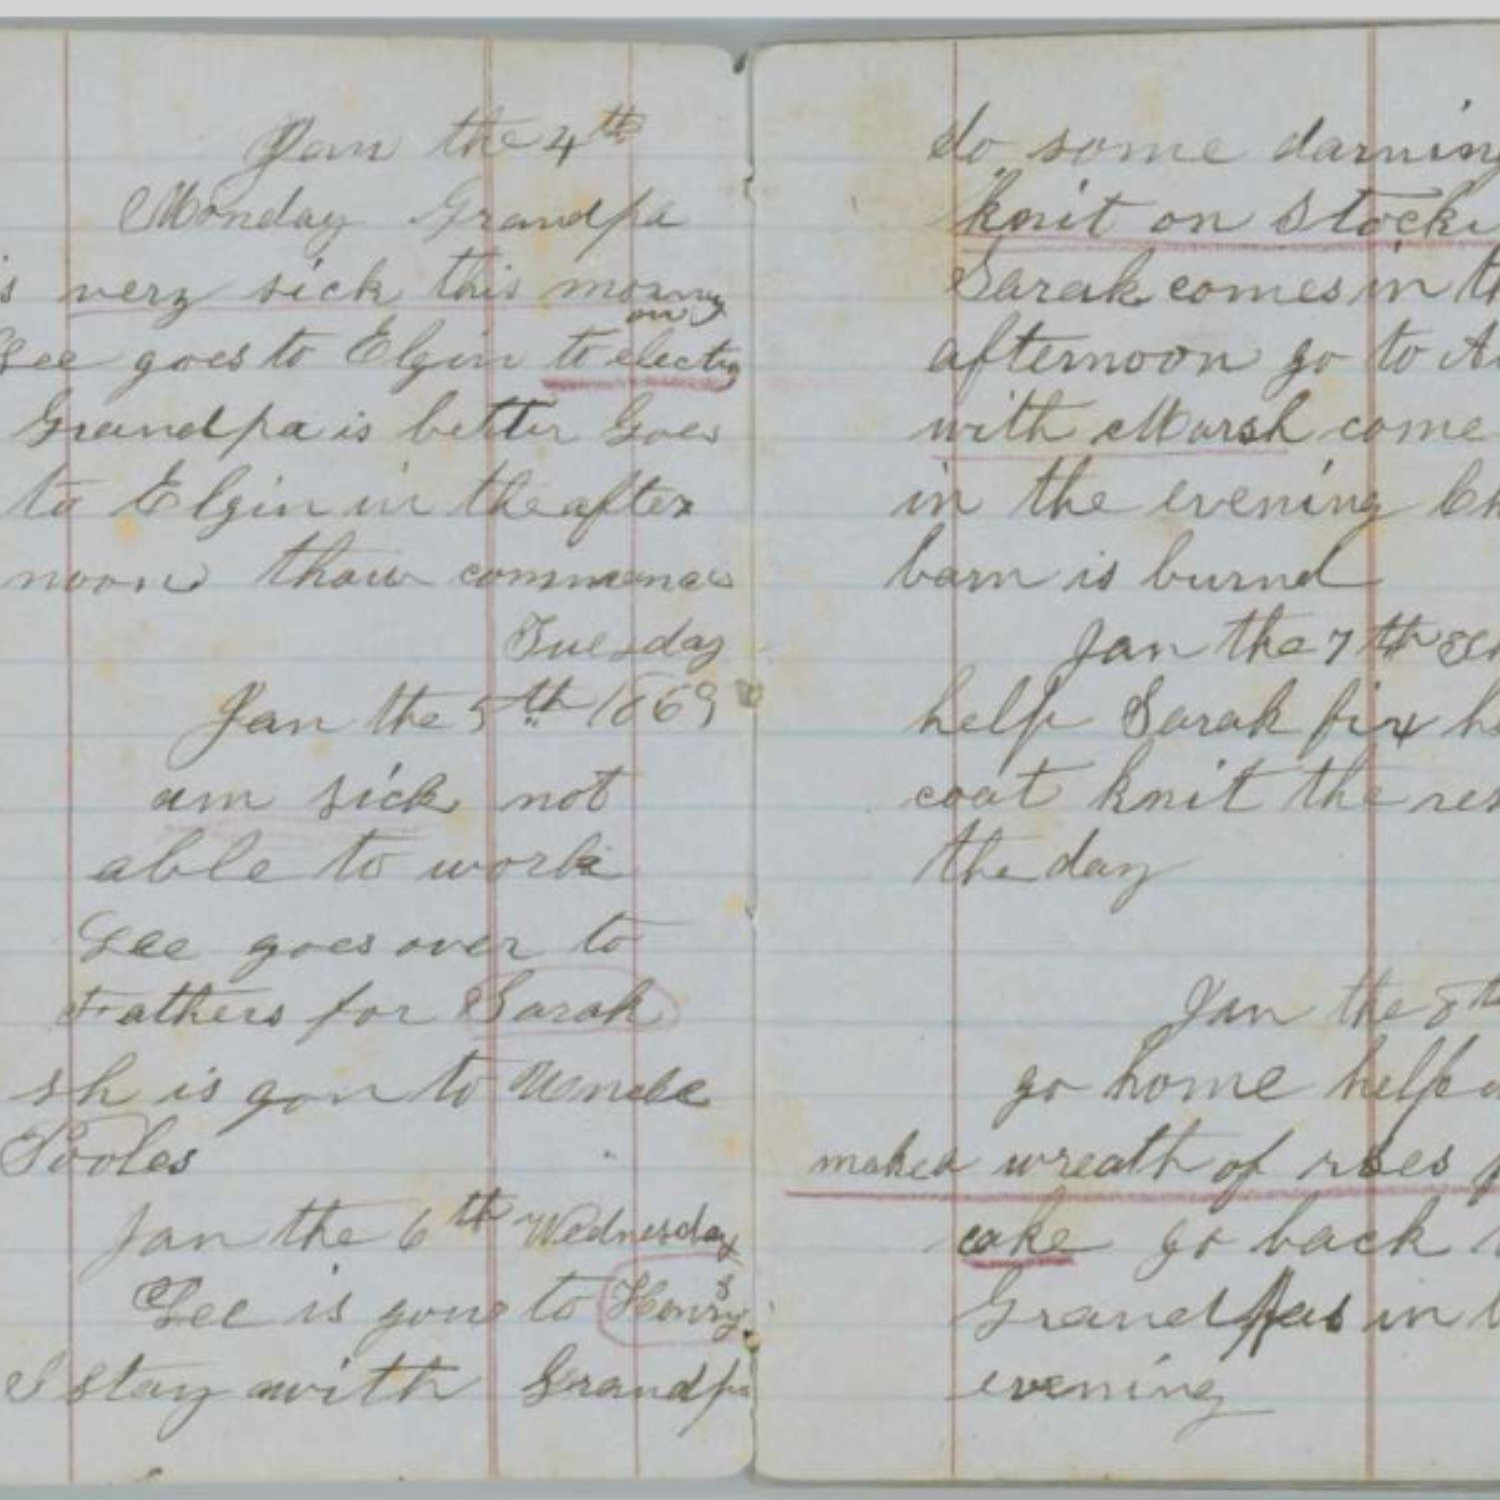 Jan the 4th
Monday Grandpa
is very sick this morning
Lee goes to Elgin to election
Grandpa is better Goes
to Elgin in the after
noon thaw commences
Tuesday
Jan the 5th 1869
am sick not
able to work
Lee goes over to
Fathers for Sarah
sh is gon to Uncle
Pooles
Jan the 6th Wednesday
Lee is gone to Henrys
I stay with Grandpa
do some darning
knit on Stocki
Sarah comes in th
afternoon go to
with Marsh come
in the evening
barn is burnd
Jan the 7th
help Sarah fix h
coat knit the res
the day
Jan the 8th
go home help
makea wreath of roses
cake go back
Grandpas in
evening